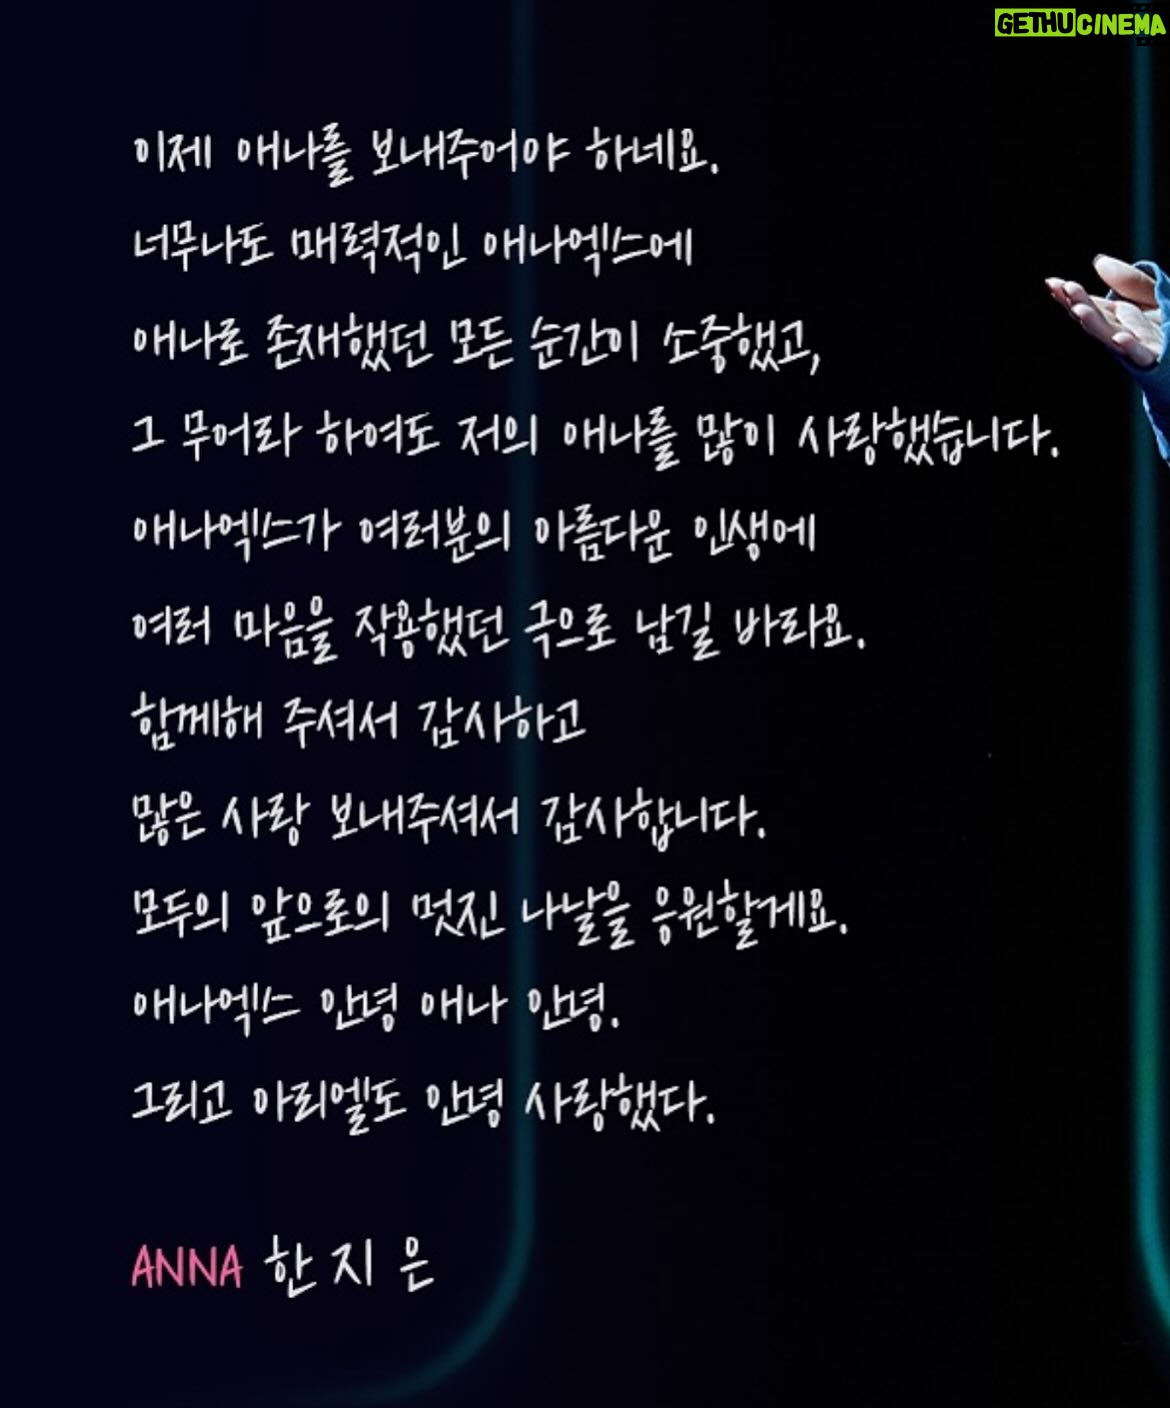 GETHUCINEMA
이제 애나를 보내주어야 하네요.
너무나도 매력적인 애나엑스에
애나로 존재했던 모든 순간이 소중했고,
그 무어라 하여도 저의 애나를 많이 사랑했습니다.
애나엑스가 여러분의 아름다운 인생에
여러 마음을 작용했던 극으로 남길 바라요.
함께해 주셔서 감사하고
많은 사랑 보내주셔서 감사합니다.
모두의 앞으로의 멋진 나날을 응원할게요.
애나엑스 안녕 애나 안녕.
그리고 아리엘도 안녕 사랑했다.
ANNA 한지은